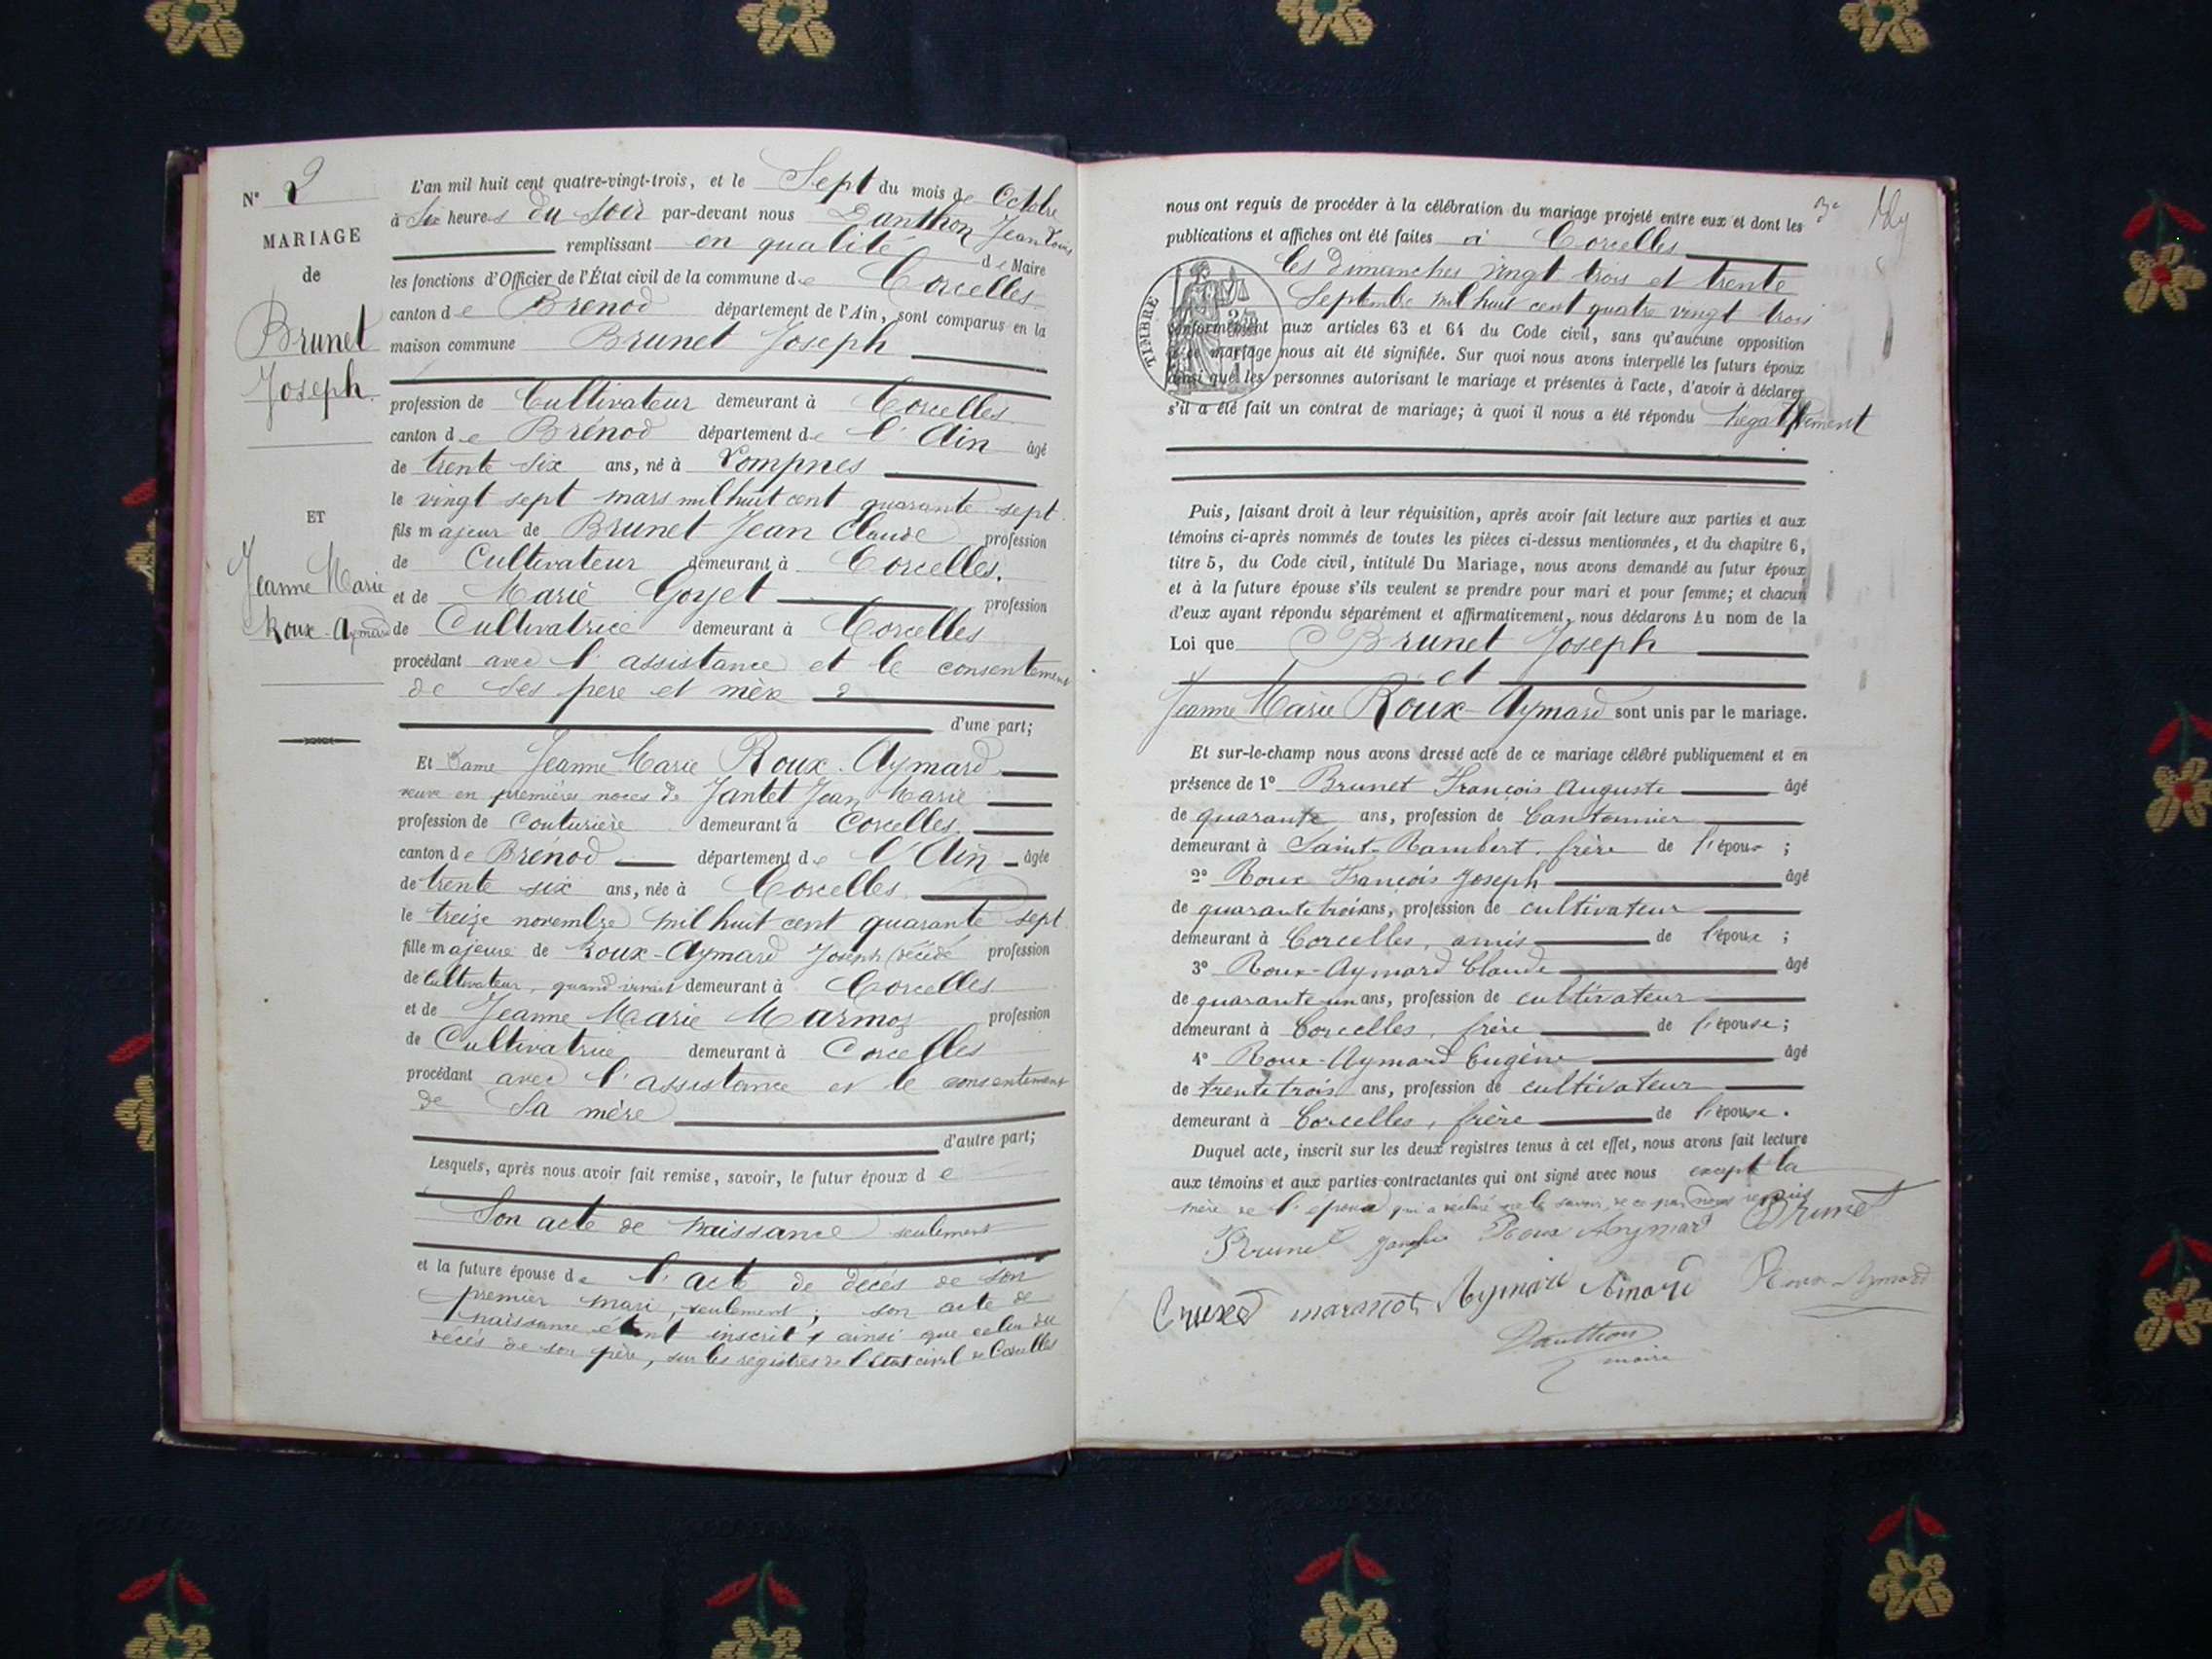 N° 2
MARIAGE
de
Brunet
Joseph.
ET
Jeanne Marie
Roux-Aymard
L'an mil huit cent quatre-vingt-trois, et le Sept du mois de Octobre
à Six heures du soir par-devant nous Danthon Jean Louis
remplissant en qualité de Maire
les fonctions d'Officier de l'État civil de la commune de Corcelles
canton de Brenod département de l'Ain, sont comparus en la
maison commune Brunet Joseph
profession de Cultivateur demeurant à Corcelles
canton de Brénod département de l'Ain âgé
de trente six ans, né à Lompnes
le vingt sept mars mil huit cent quarante sept
fils majeur de Brunet Jean Claude profession
de Cultivateur demeurant à Corcelles.
et de Marie Goyet profession
de Cultivatrice demeurant à Corcelles
procédant avec l'assistance et le consentement
de ses père et mère
d'une part;
Et Dame Jeanne Marie Roux-Aymard
veuve en premières noces de Jantet Jean Marie
profession de Couturière demeurant à Corcelles.
canton de Brénod département de l'Ain âgée
de trente six ans, née à Corcelles
le treize novembre mil huit cent quarante sept
fille majeure de Roux-Aymard Joseph décédé profession
de Cultivateur, quand vivait demeurant à Corcelles
et de Jeanne Marie Marmoz profession
de Cultivatrice demeurant à Corcelles
procédant avec l'assistance et le consentement
de Sa mère
d'autre part;
Lesquels, après nous avoir fait remise, savoir, le futur époux de
Son acte de naissance seulement
et la future épouse de l'acte de décès de son
premier mari, seulement; son acte de
naissance étant inscrit, ainsi que celui du
décès de son père, sur les registres de l'état civil de Corcelles
3e
nous ont requis de procéder à la célébration du mariage projeté entre eux et dont les
publications et affiches ont été faites à Corcelles
les dimanches vingt trois et trente
Septembre mil huit cent quatre vingt trois
TIMBRE
conformément aux articles 63 et 64 du Code civil, sans qu'aucune opposition
à ce mariage nous ait été signifiée. Sur quoi nous avons interpellé les futurs époux
ainsi que les personnes autorisant le mariage et présentes à l'acte, d'avoir à déclarer
s'il a été fait un contrat de mariage; à quoi il nous a été répondu négativement
Puis, faisant droit à leur réquisition, après avoir fait lecture aux parties et aux
témoins ci-après nommés de toutes les pièces ci-dessus mentionnées, et du chapitre 6,
titre 5, du Code civil, intitulé Du Mariage, nous avons demandé au futur époux
et à la future épouse s'ils veulent se prendre pour mari et pour femme; et chacun
d'eux ayant répondu séparément et affirmativement, nous déclarons Au nom de la
Loi que Brunet Joseph
et
Jeanne Marie Roux-Aymard sont unis par le mariage.
Et sur-le-champ nous avons dressé acte de ce mariage célébré publiquement et en
présence de 1° Brunet François Auguste âgé
de quarante ans, profession de Cantonnier
demeurant à Saint-Rambert, frère de l'époux ;
2° Roux François Joseph âgé
de quarante trois ans, profession de cultivateur
demeurant à Corcelles, amis de l'époux ;
3° Roux-Aymard Claude âgé
de quarante un ans, profession de cultivateur
demeurant à Corcelles, frère de l'épouse;
4° Roux-Aymard Eugène âgé
de trente trois ans, profession de cultivateur
demeurant à Corcelles, frère de l'épouse.
Duquel acte, inscrit sur les deux registres tenus à cet effet, nous avons fait lecture
aux témoins et aux parties contractantes qui ont signé avec nous excepté la
mère de l'époux qui a déclaré ne le savoir, de ce par nous requis
Brunet Joseph Roux Aymard Brunet
marmot Aymard Aimard Roux-Aymard
Danthon
maire